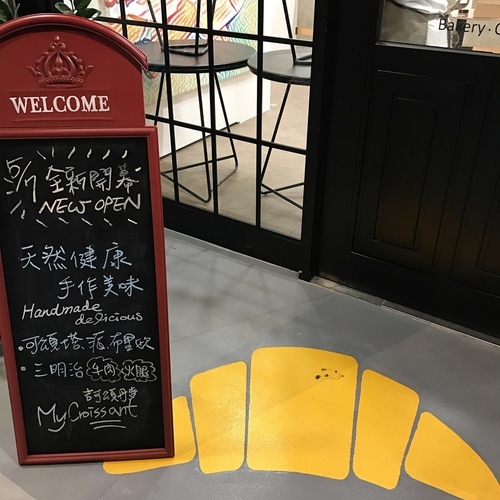 WELCOME
5/7 全新開幕
NEW OPEN
天然健康
手作美味
Handmade
delicious
•可頌塔、派、布里歐
•三明治 牛肉 火腿
My Croissant
Bakery • C